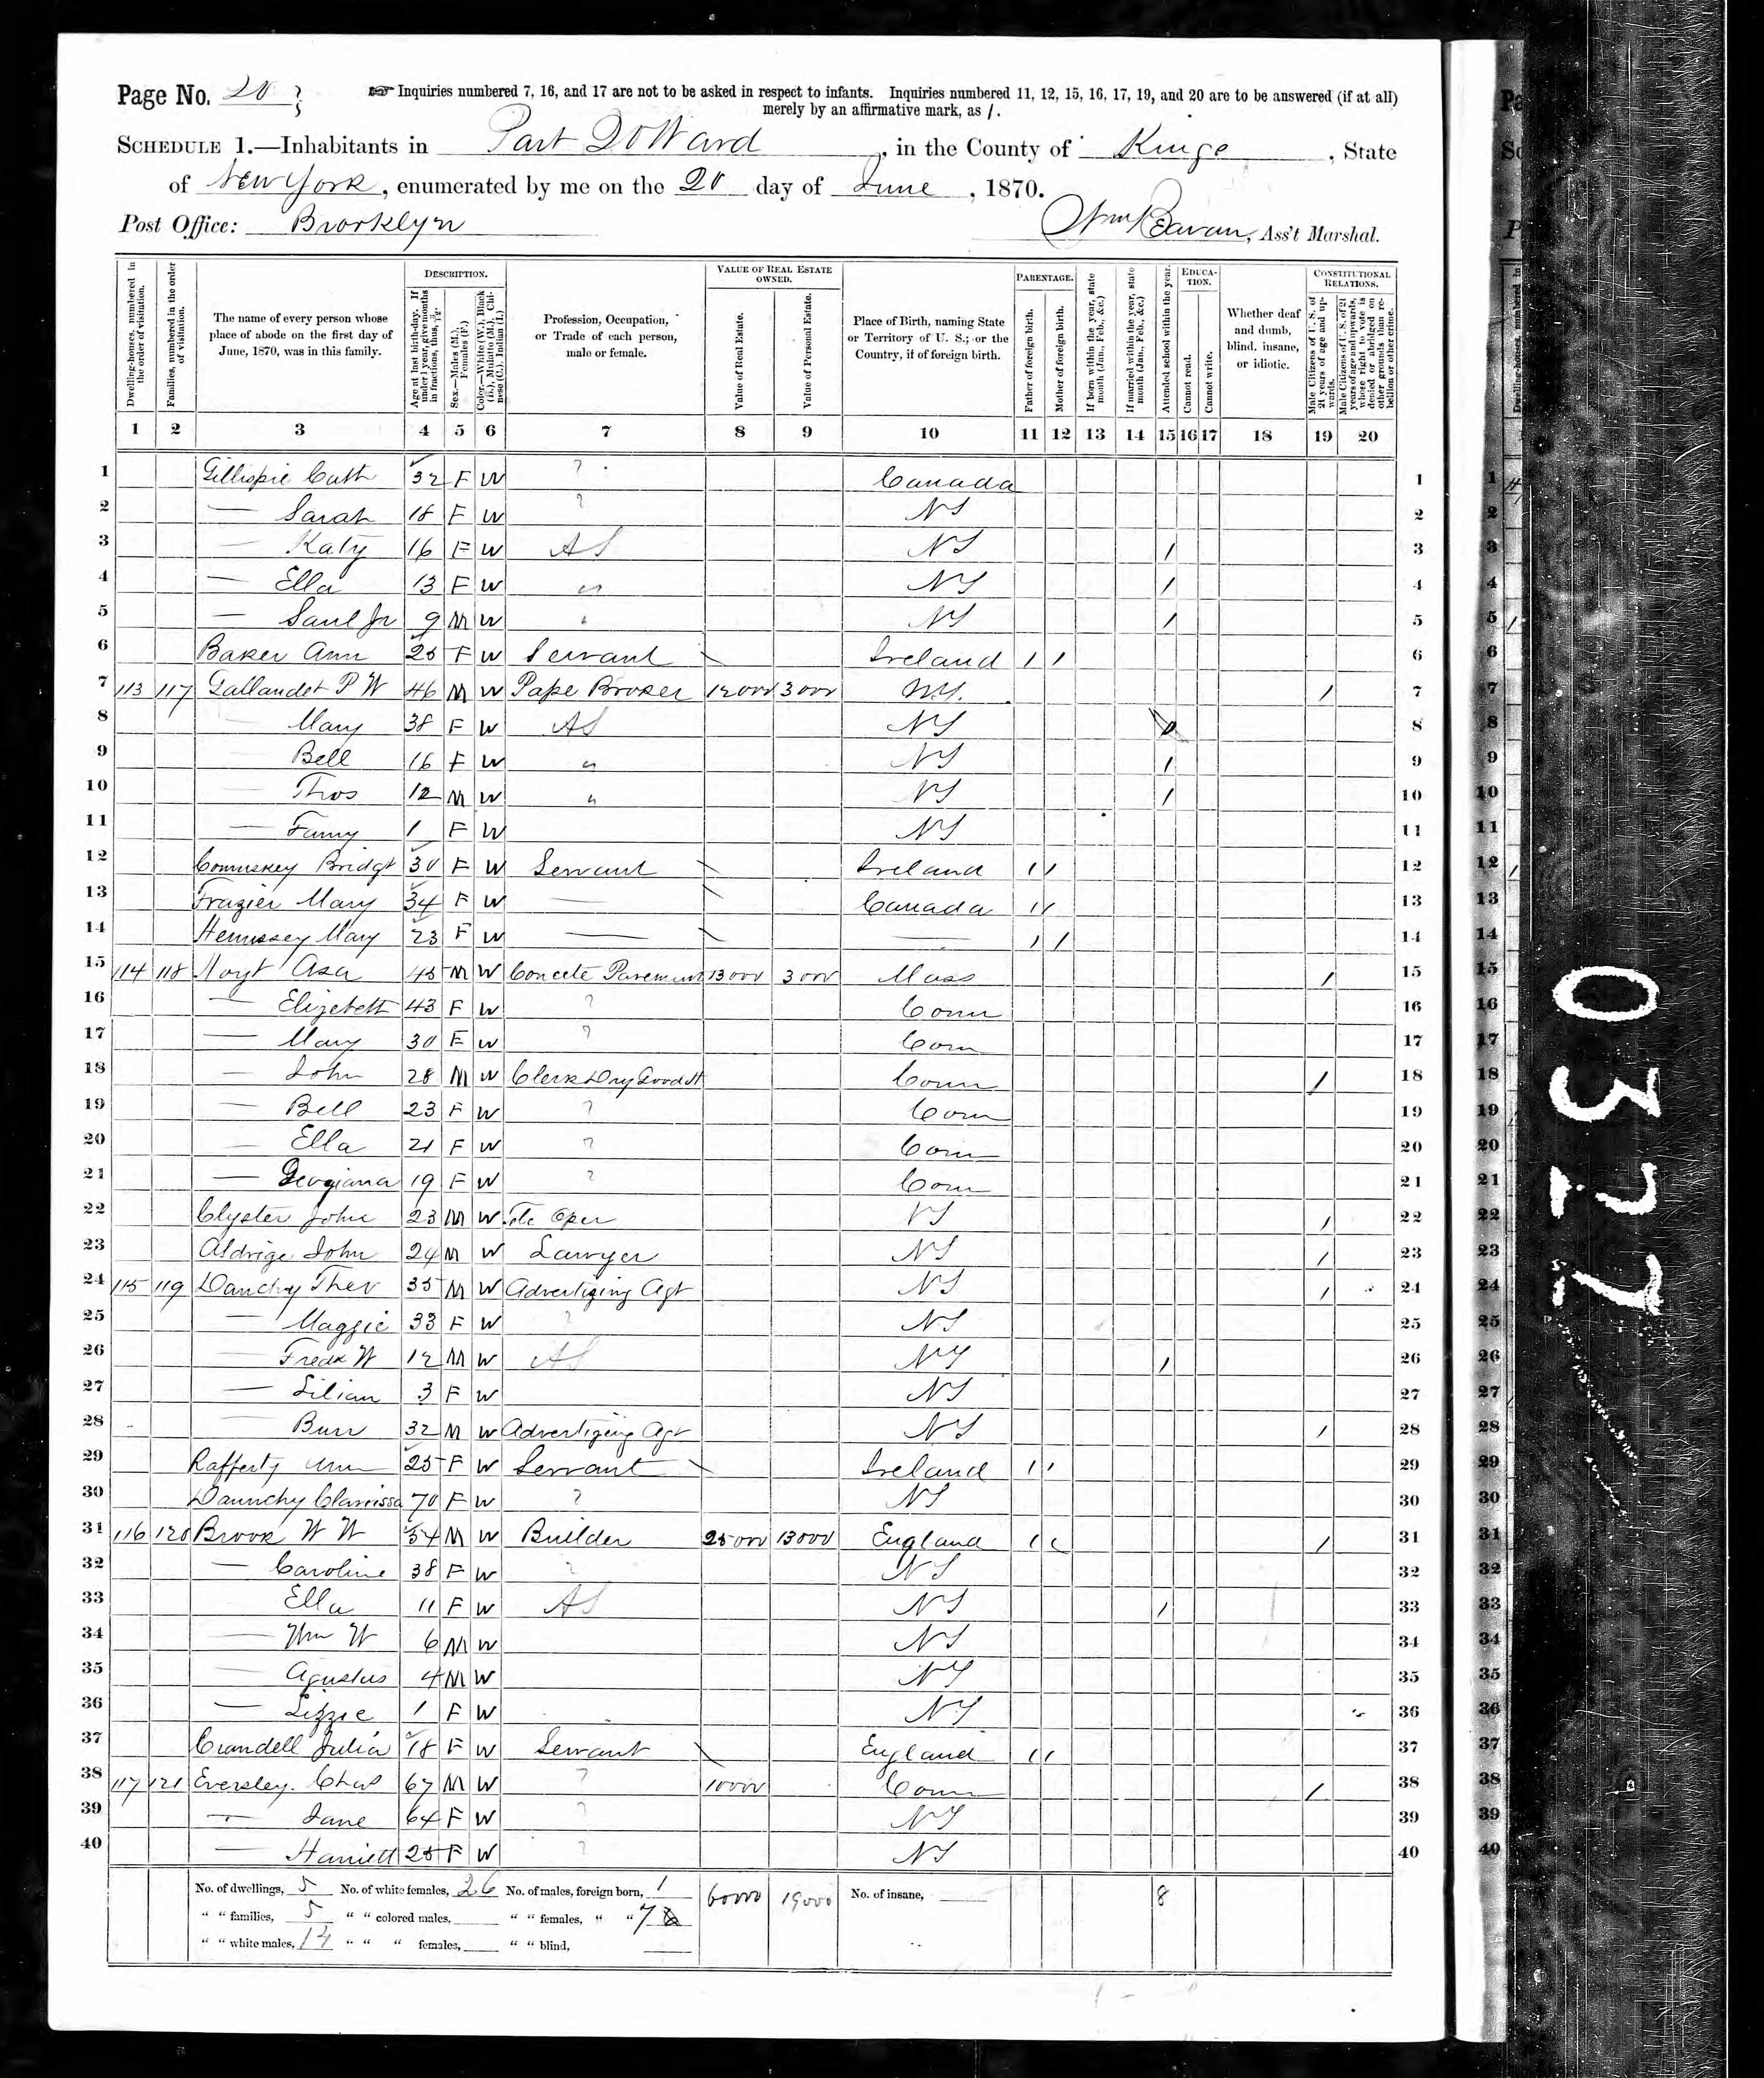 Page No. 20
☞ Inquiries numbered 7, 16, and 17 are not to be asked in respect to infants. Inquiries numbered 11, 12, 15, 16, 17, 19, and 20 are to be answered (if at all)
merely by an affirmative mark, as /.
SCHEDULE 1.—Inhabitants in Part 20 Ward, in the County of Kings, State
of New York, enumerated by me on the 20 day of June, 1870.
Post Office: Brooklyn
Wm Bavan, Ass't Marshal.
Dwelling-houses, numbered in the order of visitation.
Families, numbered in the order of visitation.
The name of every person whose place of abode on the first day of June, 1870, was in this family.
DESCRIPTION.
Age at last birth-day. If under 1 year, give months in fractions, thus, 3/12.
Sex.—Males (M.), Females (F.)
Color.—White (W.), Black (B.), Mulatto (M.), Chinese (C.), Indian (I.)
Profession, Occupation, or Trade of each person, male or female.
VALUE OF REAL ESTATE OWNED.
Value of Real Estate.
Value of Personal Estate.
Place of Birth, naming State or Territory of U. S.; or the Country, if of foreign birth.
PARENTAGE.
Father of foreign birth.
Mother of foreign birth.
If born within the year, state month (Jan., Feb., &c.)
If married within the year, state month (Jan., Feb., &c.)
Attended school within the year.
EDUCATION.
Cannot read.
Cannot write.
Whether deaf and dumb, blind, insane, or idiotic.
CONSTITUTIONAL RELATIONS.
Male Citizens of U. S. of 21 years of age and upwards.
Male Citizens of U. S. of 21 years of age and upwards, whose right to vote is denied or abridged on other grounds than rebellion or other crime.
1 2 3 4 5 6 7 8 9 10 11 12 13 14 15 16 17 18 19 20
1 Gillispie Cath 32 F W ? Canada 1
2 — Sarah 18 F W ? NY 2
3 — Katy 16 F W AS NY / 3
4 — Ella 13 F W " NY / 4
5 — Saml Jr 9 M W " NY / 5
6 Baker Ann 25 F W Servant Ireland / / 6
7 113 117 Gallandet P W 46 M W Pape Broker 12000 3000 N.Y. / 7
8 — Mary 38 F W AS NY 8
9 Bell 16 F W " NY / 9
10 — Thos 12 M W " NY / 10
11 — Fanny 1 F W NY 11
12 Comuskey Bridgt 30 F W Servant Ireland / / 12
13 Frazier Mary 34 F W — Canada / / 13
14 Hennssey Mary 23 F W — — / / 14
15 114 118 Hoyt Asa 45 M W Concete Pavement 13000 3000 Mass / 15
16 — Elizebeth 43 F W ? Conn 16
17 — Mary 30 F W ? Conn 17
18 — John 28 M W Clerk Dry Good St Conn / 18
19 — Bell 23 F W ? Conn 19
20 — Ella 21 F W ? Conn 20
21 — Georgiana 19 F W ? Conn 21
22 Clyster John 23 M W Tele Oper NY / 22
23 Aldrige John 24 M W Lawyer NY / 23
24 115 119 Dauchy Theo 35 M W Advertizing Agt NY / 24
25 — Maggie 33 F W ? NY 25
26 — Fredk W 12 M W AS NY / 26
27 — Lilian 3 F W NY 27
28 — Burr 32 M W Advertizing Agt NY / 28
29 Rafferty Ann 25 F W Servant Ireland / / 29
30 Daunchy Clarrissa 70 F W ? NY 30
31 116 120 Brook W W 54 M W Builder 25000 13000 England / / / 31
32 — Caroline 38 F W ? NY 32
33 — Ella 11 F W AS NY / 33
34 — Wm W 6 M W NY 34
35 — Agustus 4 M W NY 35
36 — Lizzie 1 F W NY 36
37 Crandell Julia 18 F W Servant England / / 37
38 117 121 Eversley Chas 67 M W ? 10000 Conn / 38
39 — Jane 64 F W ? NY 39
40 — Harriett 25 F W ? NY 40
No. of dwellings, 5 No. of white females, 26 No. of males, foreign born, 1 60000 19000 No. of insane, 8
" " families, 5 " " colored males, " " females, " " 7
" " white males, 14 " " " females, " " blind,
0377